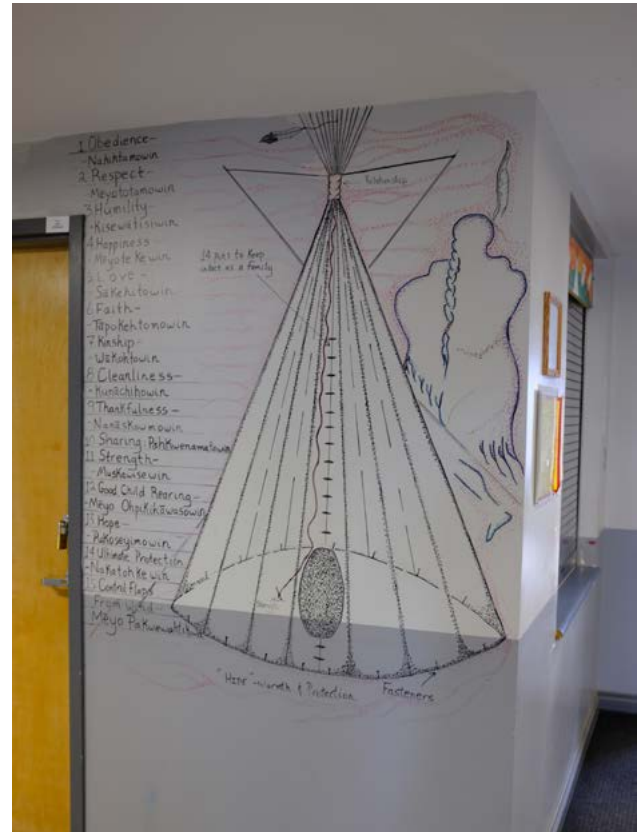 1 Obedience-
-Nahihtamowin
2 Respect-
-Meyototamowin
3 Humility-
-Kisewatisiwin
4 Happiness-
-Meyotekewin
5 Love-
-Sakehitowin
6 Faith-
-Tapokehtomowin
7 Kinship-
-Wakohtowin
8 Cleanliness-
-Kunachihowin
9 Thankfulness-
-Nanaskowmowin
10 Sharing-Pahkwenamatowin
11 Strength-
-Muskawisewin
12 Good Child Rearing-
-Meyo Ohpikihawasowin
13 Hope-
-Pakoseyimowin
14 Ultimate Protection
-Nakatohkewin
15 Control flaps
From wind-
Meyo
Relationship
14 pins to keep
intact as a family
"Home"-warmth & Protection
Fasteners